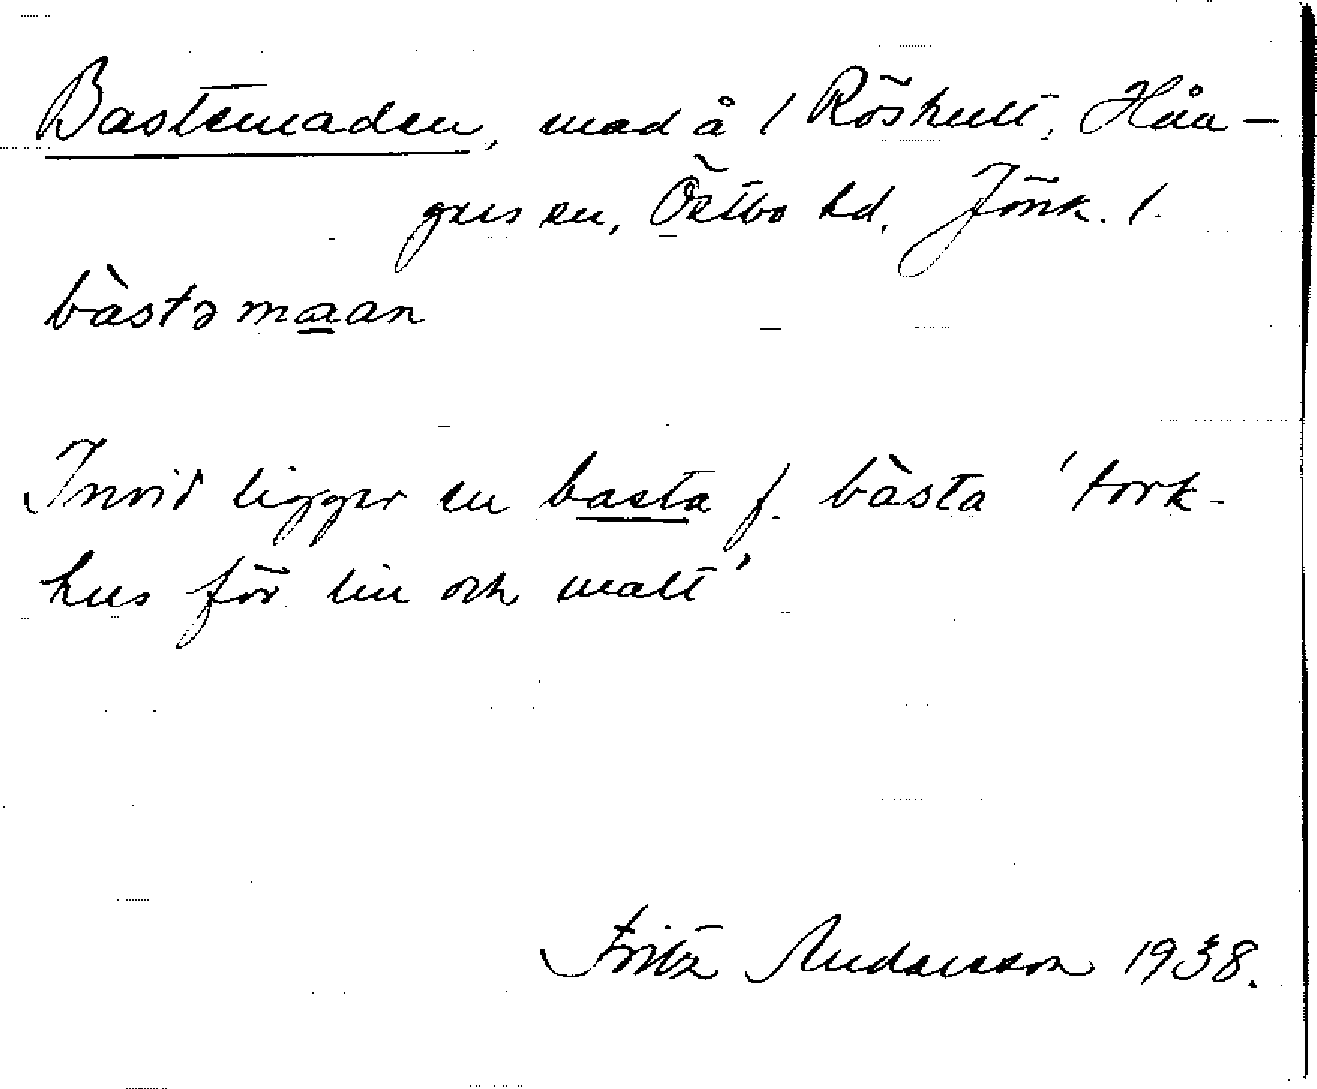 Bastemaden, mad å 1 Röshult, Hån-
gers sn, Östbo hd. Jönk. l.
bàstə maan
Invid ligger en basta f. bàsta 'tork-
hus för lin och malt'
Fritz Andersson 1938.